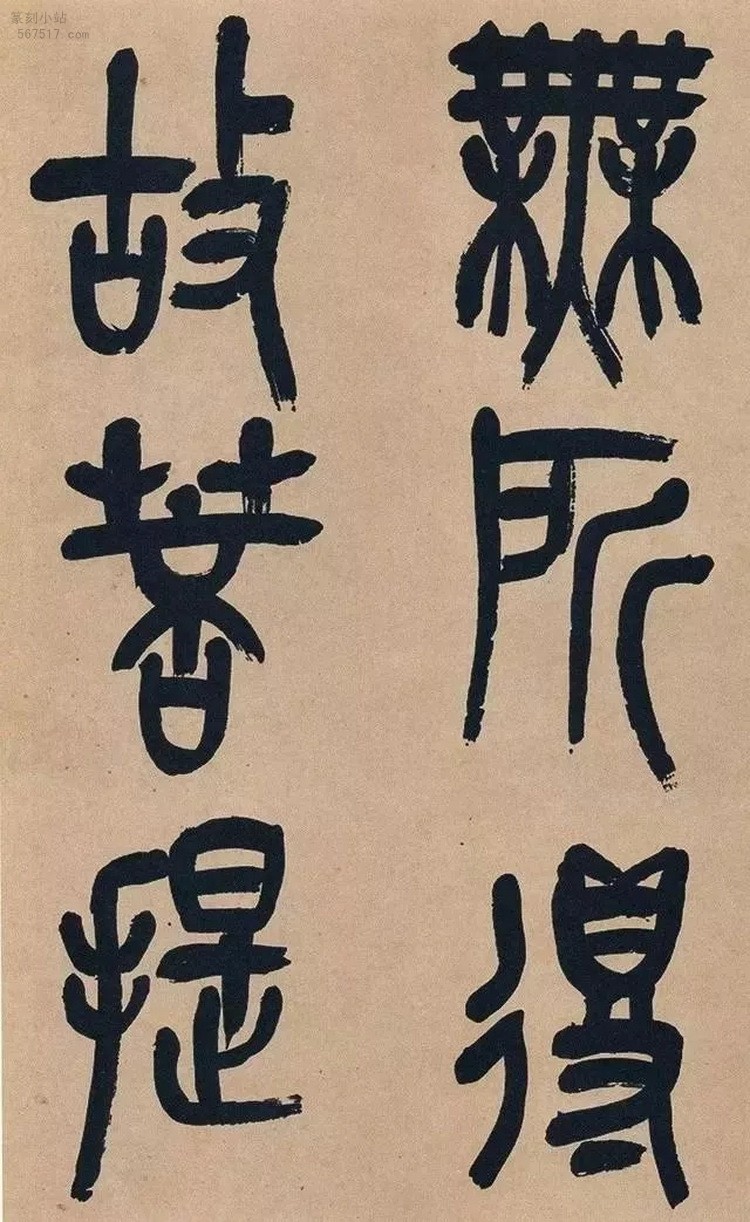 無所得
故菩提
篆刻小站
567517.com